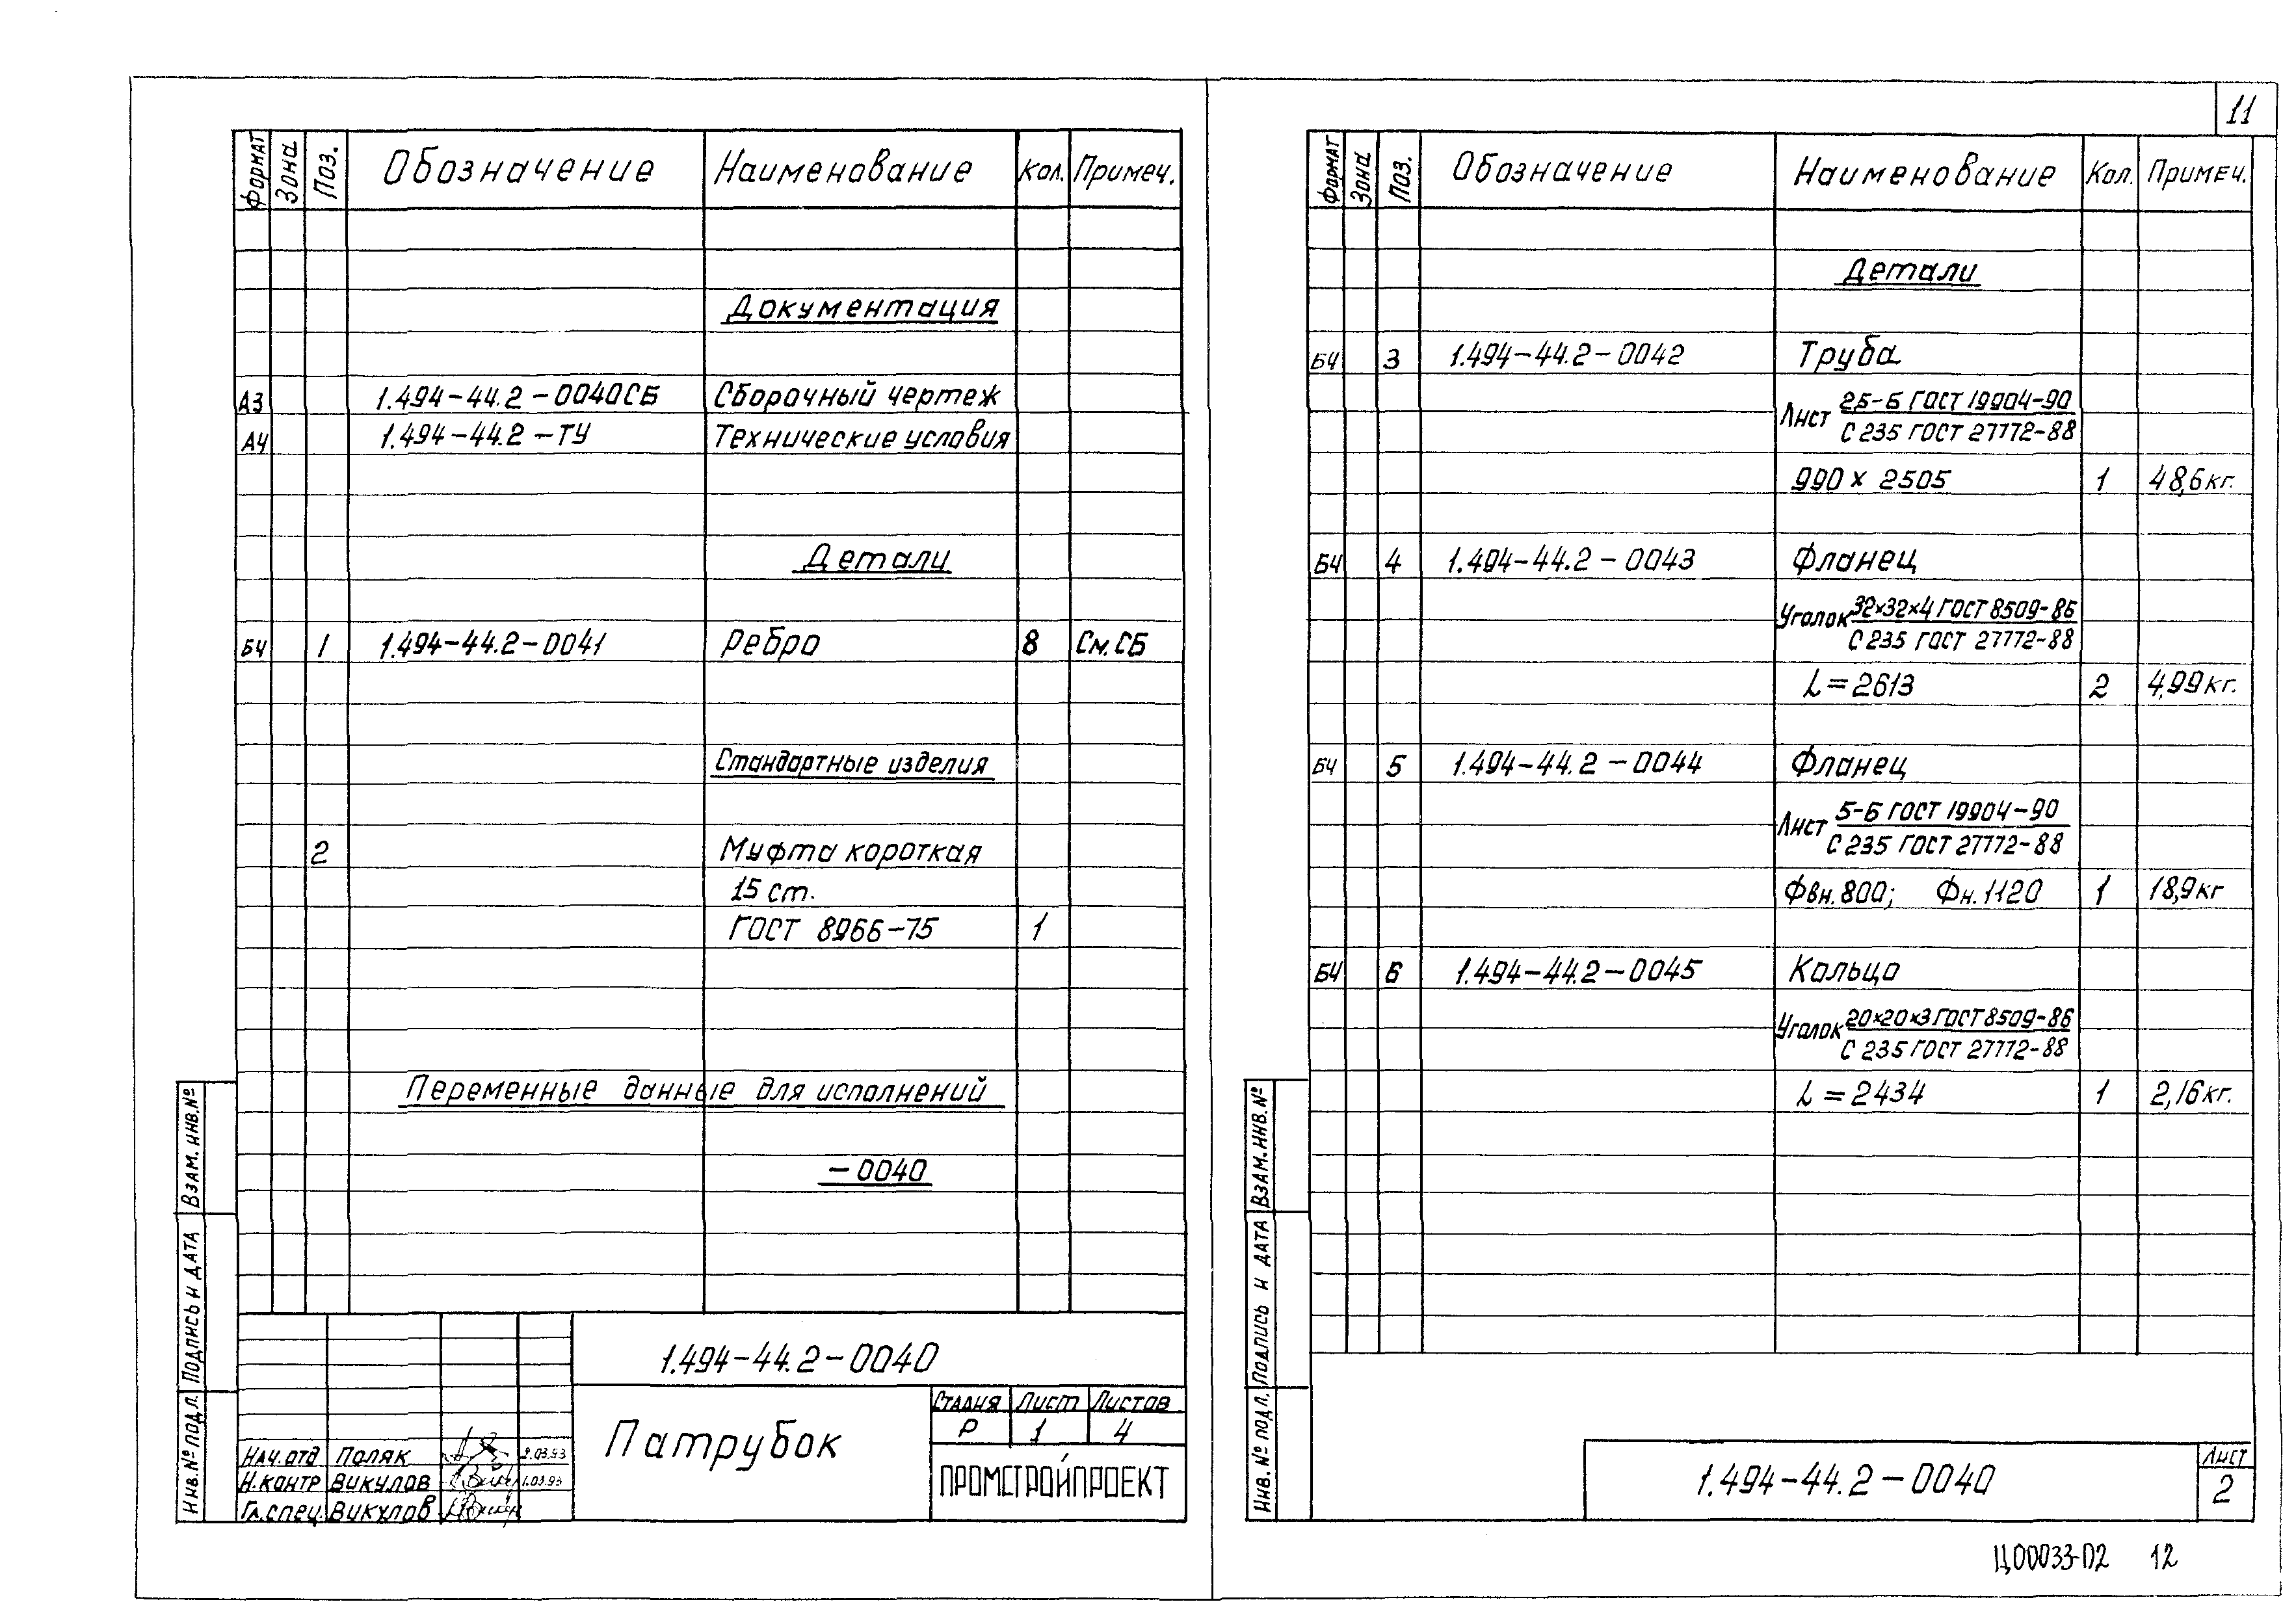 11
Формат Зона Поз. Обозначение Наименование Кол. Примеч.
Документация
А3 1.494-44.2-0040СБ Сборочный чертеж
А4 1.494-44.2-ТУ Технические условия
Детали
БЧ 1 1.494-44.2-0041 Ребро 8 См.СБ
Стандартные изделия
2 Муфта короткая
15 ст.
ГОСТ 8966-75 1
Переменные данные для исполнений
-0040
Взам. инв. №
Подпись и дата
Инв. № подл.
1.494-44.2-0040
Патрубок
Стадия Лист Листов
Р 1 4
ПРОМСТРОЙПРОЕКТ
Нач.отд Поляк 2.03.93
Н.контр Викулов 1.03.93
Гл.спец. Викулов
Формат Зона Поз. Обозначение Наименование Кол. Примеч.
Детали
БЧ 3 1.494-44.2-0042 Труба
Лист 2,5-Б ГОСТ 19904-90
С 235 ГОСТ 27772-88
990 х 2505 1 48,6 кг.
БЧ 4 1.494-44.2-0043 Фланец
Уголок 32×32×4 ГОСТ 8509-86
С 235 ГОСТ 27772-88
L=2613 2 4,99 кг.
БЧ 5 1.494-44.2-0044 Фланец
Лист 5-Б ГОСТ 19904-90
С 235 ГОСТ 27772-88
Фвн. 800; Фн. 1120 1 18,9 кг
БЧ 6 1.494-44.2-0045 Кольцо
Уголок 20×20×3 ГОСТ 8509-86
С 235 ГОСТ 27772-88
L=2434 1 2,16 кг.
Взам. инв. №
Подпись и дата
Инв. № подл.
1.494-44.2-0040
Лист
2
Ц00033-02 12